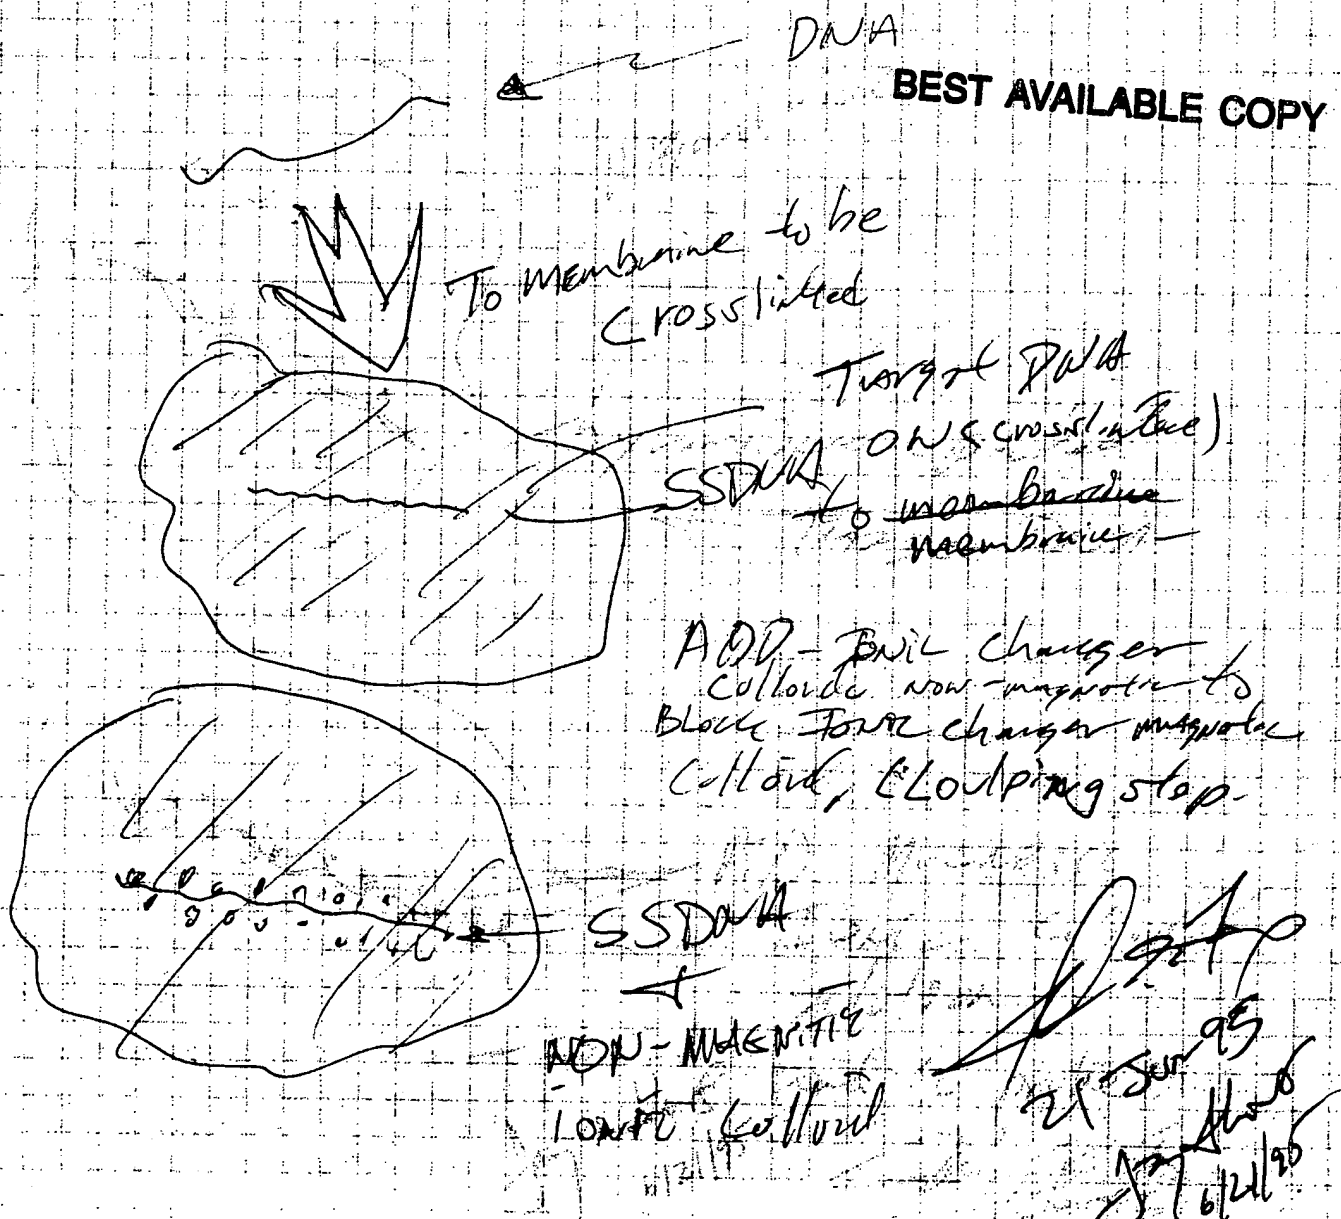 DNA
BEST AVAILABLE COPY
To Membraine to be
Crosslinked
Target DNA
SSDNA ON (crosslinked)
to membraine
membraine
ADD - Ionic charger
colloidal non-magnetic to
Block Ionic charger magnetic
Colloid, step.
SSDNA
+
NON-MAGNITIC
IONIC Colloid
21 Jun 95
6/21/95